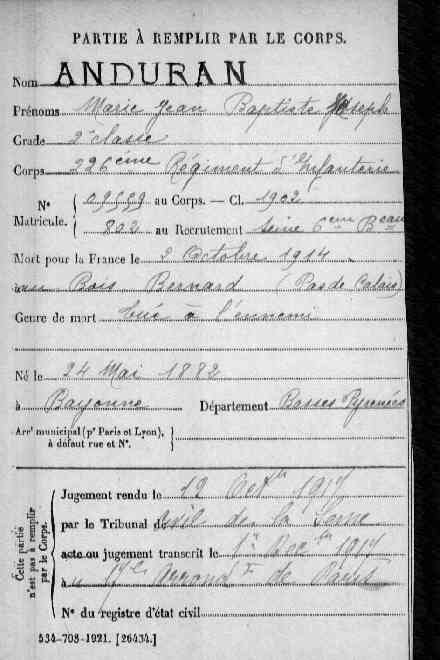 PARTIE À REMPLIR PAR LE CORPS.
Nom ANDURAN
Prénoms Marie Jean Baptiste Joseph
Grade 2e classe
Corps 226ème Régiment d'Infanterie
N° Matricule. { 09559 au Corps. — Cl. 1902
802 au Recrutement Seine 6eme Beau
Mort pour la France le 2 Octobre 1914
au Bois Bernard (Pas de Calais)
Genre de mort tué à l'ennemi
Né le 24 Mai 1882
à Bayonne Département Basses Pyrénées
Arrt municipal (pr Paris et Lyon), à défaut rue et N°. }
Cette partie n'est pas à remplir par le Corps.
Jugement rendu le 12 Octbre 1917
par le Tribunal de Civil de la Seine
acte ou jugement transcrit le 1er Décbre 1917
à au arrondt de Paris
N° du registre d'état civil
534-708-1921. [26434.]